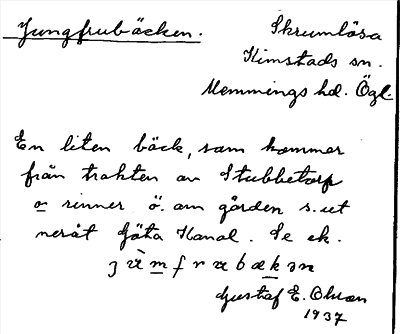 Jungfrubäcken.
Skrumlösa
Kimstads sn.
Memmings hd. Ögl.
En liten bäck, som kommer
från trakten av Stubbetorp
o. rinner ö. om gården s. ut
neråt Göta Kanal. Se ek.
Gustaf E. Olson
1937